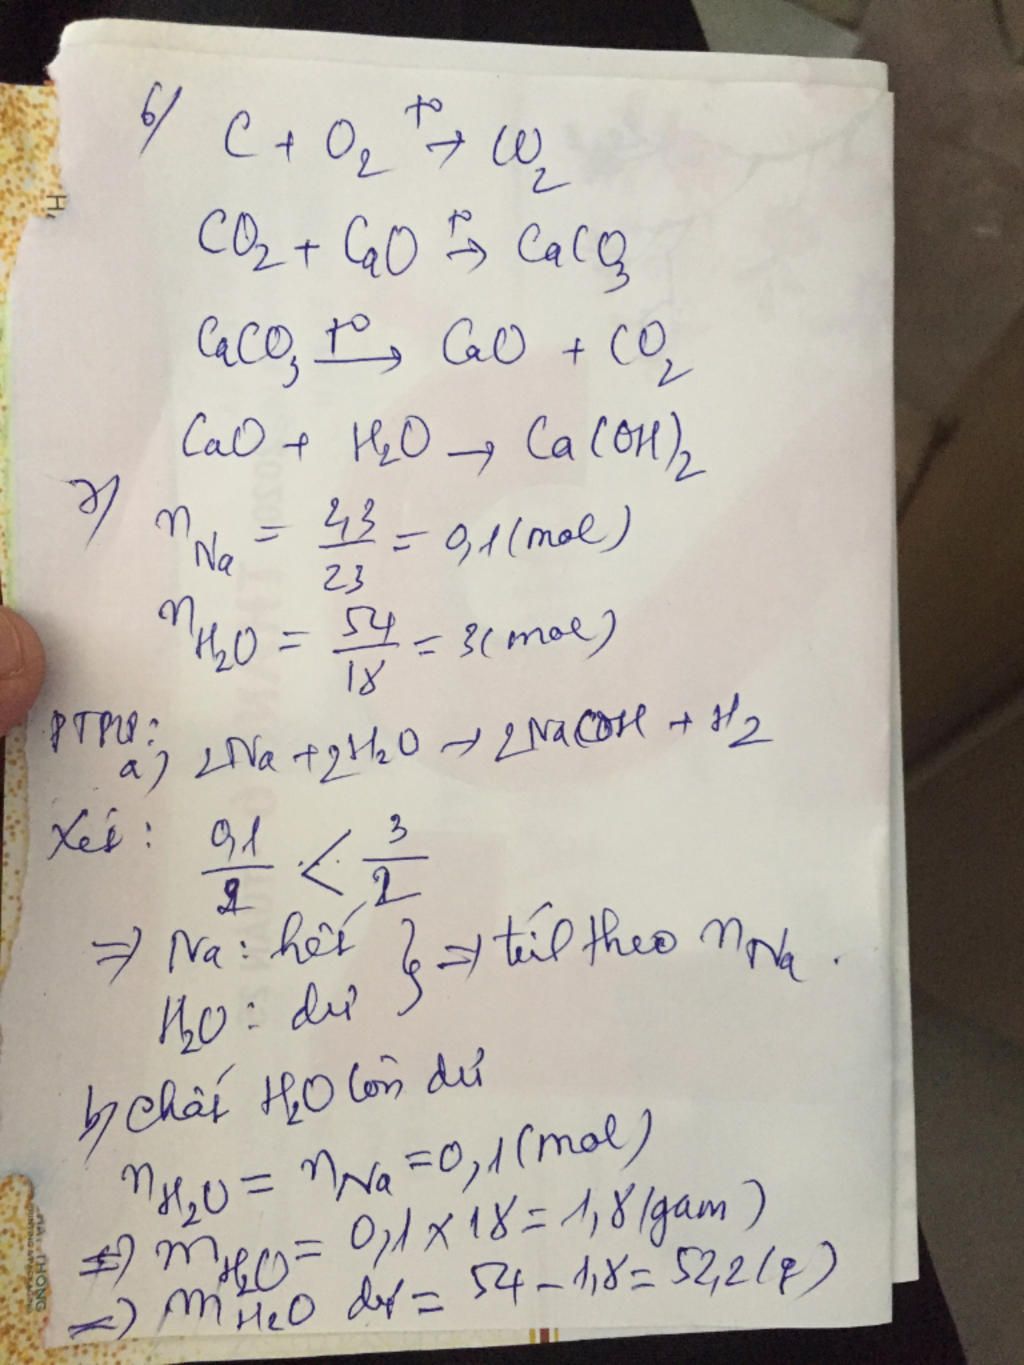 6) C + O₂ t° → CO₂
CO₂ + CaO t° → CaCO₃
CaCO₃ t° → CaO + CO₂
CaO + H₂O → Ca(OH)₂
7) n Na = 2,3/23 = 0,1 (mol)
n H₂O = 54/18 = 3 (mol)
PTPƯ:
a) 2Na + 2H₂O → 2NaOH + H₂
Xét: 0,1/2 < 3/2
=> Na: hết } => tính theo n Na.
H₂O: dư
b) Chất H₂O còn dư
n H₂O = n Na = 0,1 (mol)
=> m H₂O = 0,1 x 18 = 1,8 (gam)
=> m H₂O dư = 54 - 1,8 = 52,2 (g)